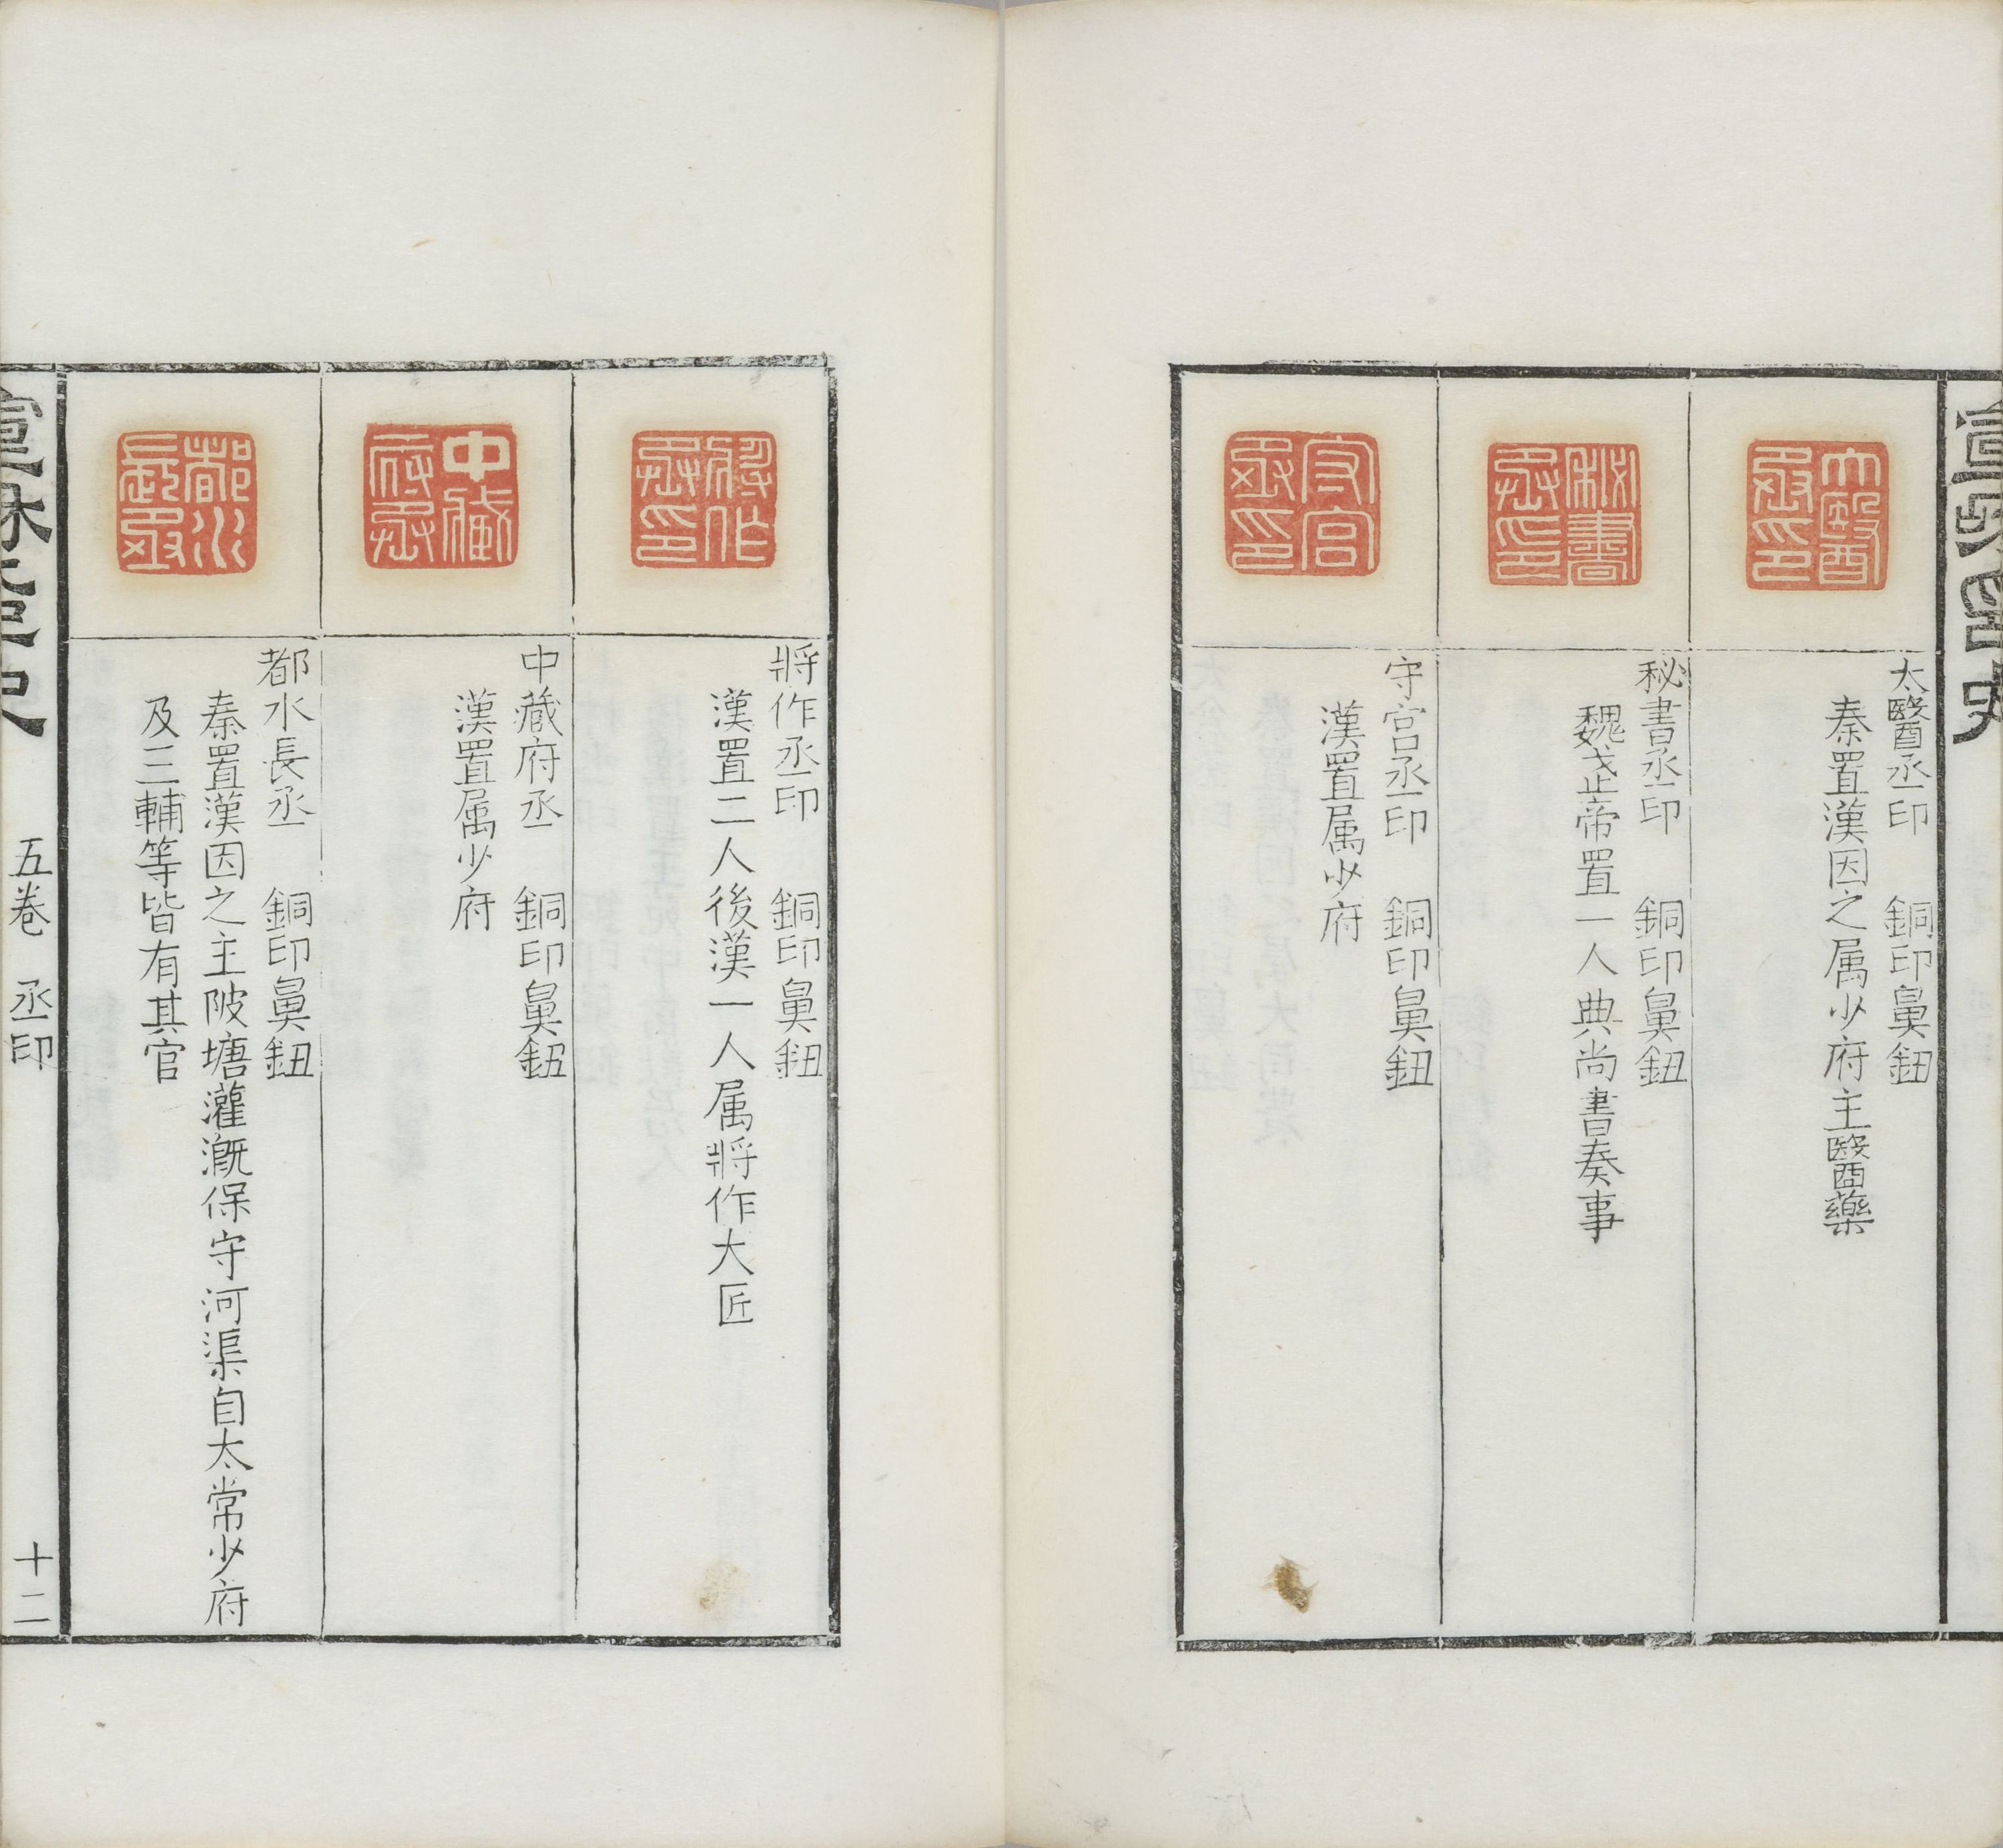 大醫
丞印
太醫丞印 銅印鼻鈕
秦置漢因之属少府主醫藥
秘書
丞印
秘書丞印 銅印鼻鈕
魏武帝置一人典尚書奏事
守宮
丞印
守宮丞印 銅印鼻鈕
漢置属少府
將作
丞印
將作丞印 銅印鼻鈕
漢置二人後漢一人属將作大匠
中藏
府丞
中藏府丞 銅印鼻鈕
漢置属少府
都水
長丞
都水長丞 銅印鼻鈕
秦置漢因之主陂塘灌漑保守河渠自太常少府
及三輔等皆有其官
五卷 丞印 十二